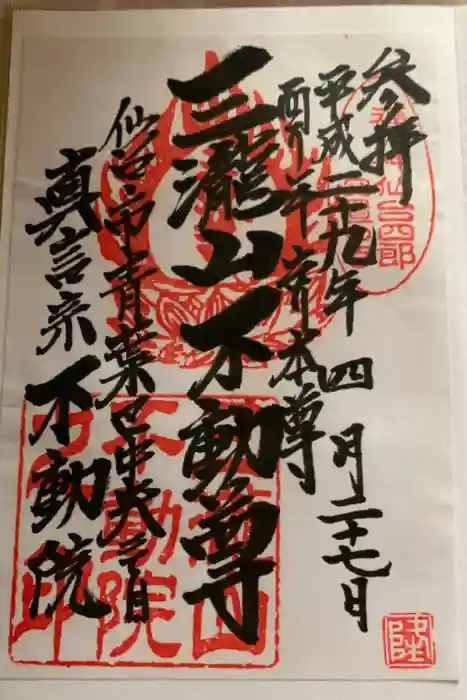 参拝
平成二十九年四月二十七日
酉年本尊
三瀧山不動尊
仙台市青葉区中央二丁目
真言宗不動院
仙台四郎